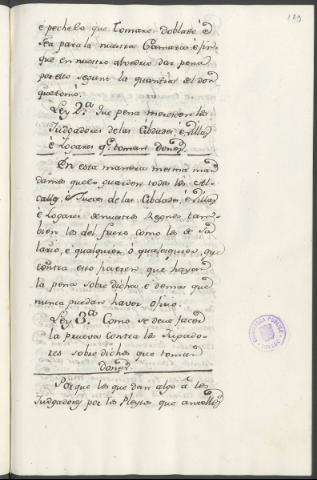 189
e pechelo que Tomare doblado é
sea para la nuestra Camara é fin
que en nuestro alvedrio dar pena
por ello segunt la quantia el don
que tomó.
Ley 2.ª Que pena merecen los
Judgadores de las Cibdades é villas
é Logares q.e toman Dones.
En esta manera mesma man
damos que lo guarden todos los Al-
calles é Jueces de las Cibdades, é villas
é Logares de nuestros Regnos tam-
bien los del fuero como los de Sa
lario, é qualquier ó qualesquier que
contra esto pasaren que hayan
la pena sobre dicha é demas que
nunca puedan haver oficio.
Ley 3.ª Como se deve facer
la prueva contra los Jusgado-
res sobre dichos que toman
Dones.
Porque los que dan algo á los
Judgadores por los Pleytos que an ante ellos